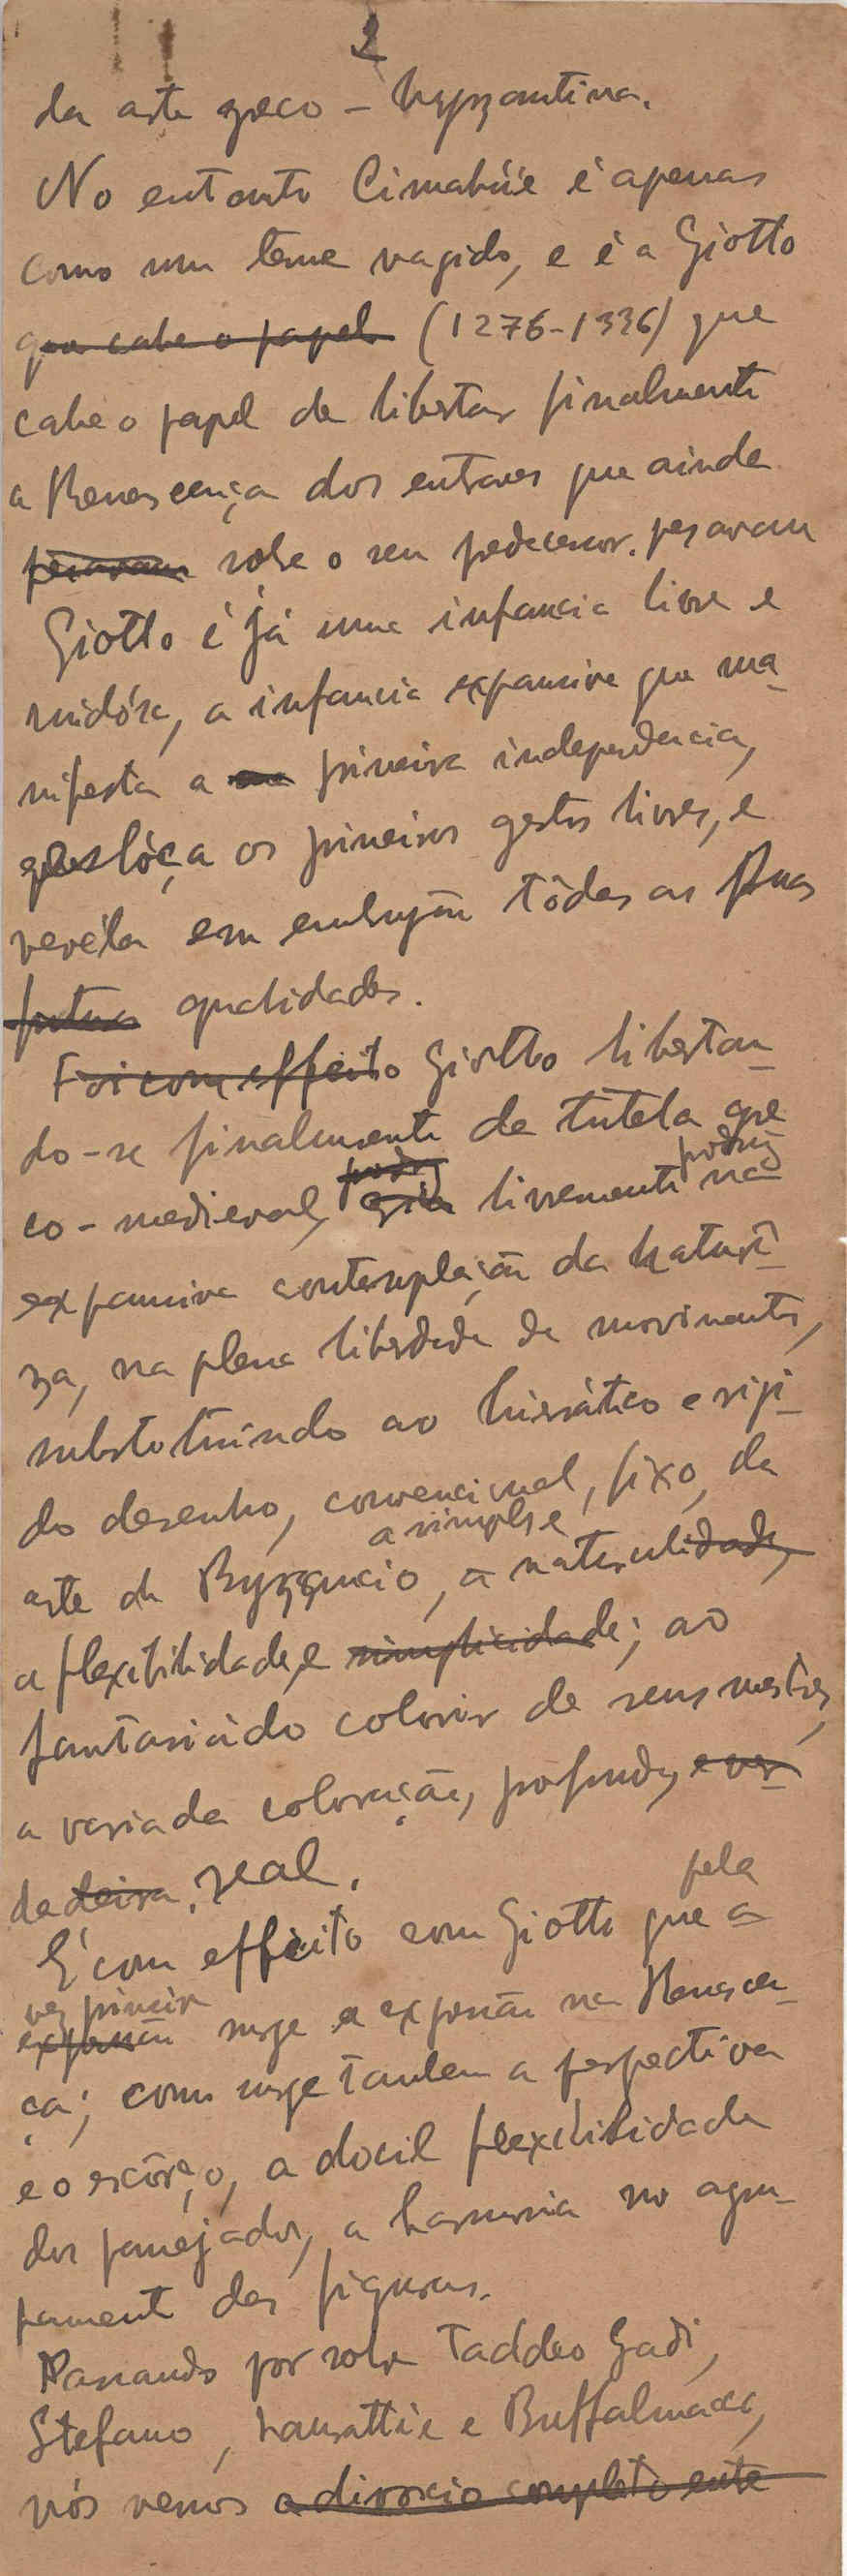 2
da arte greco-byzantina.
No entanto Cimabúe é apenas
como um tenue vagido, e é a Giotto
que cabe o papel (1276-1336) que
cabe o papel de libertar finalmente
a Renascença dos entraves que ainda
pesavam sobre o seu predecessor. pesavam
Giotto é já uma infancia livre e
, a infancia expansiva que ma-
nifesta a primeira independencia,
esbóça os primeiros gestos livres, e
revéla em embryão tôdas as suas
futuras qualidades.
Foi com effeito Giotto libertan-
do-se finalmente da tutela gre
co-medieval, livremente na
expansiva contemplação da nature-
za, na plena liberdade de movimentos,
substotuindo ao hierático e rigi-
do desenho, convencional, fixo, da
a simples e
arte de Byzancio, a naturalidade,
a flexibilidade, e simplicidade; ao
fantasiado colorir de seus mestres,
a variada coloração, profunda, e ver-
dadeira, real.
pela
É com effeito com Giotto que a
vez primeira
expansão surge a expressão na Renascen-
ça; com surge tambem a perspectiva
e o escôrço, a docil flexibilidade
dos panejados, a harmonia no agru-
pament das figuras.
Passando por sobre Taddeo Gadi,
Stefano, e Buffalmacco,
nós vemos o divorcio completo entre